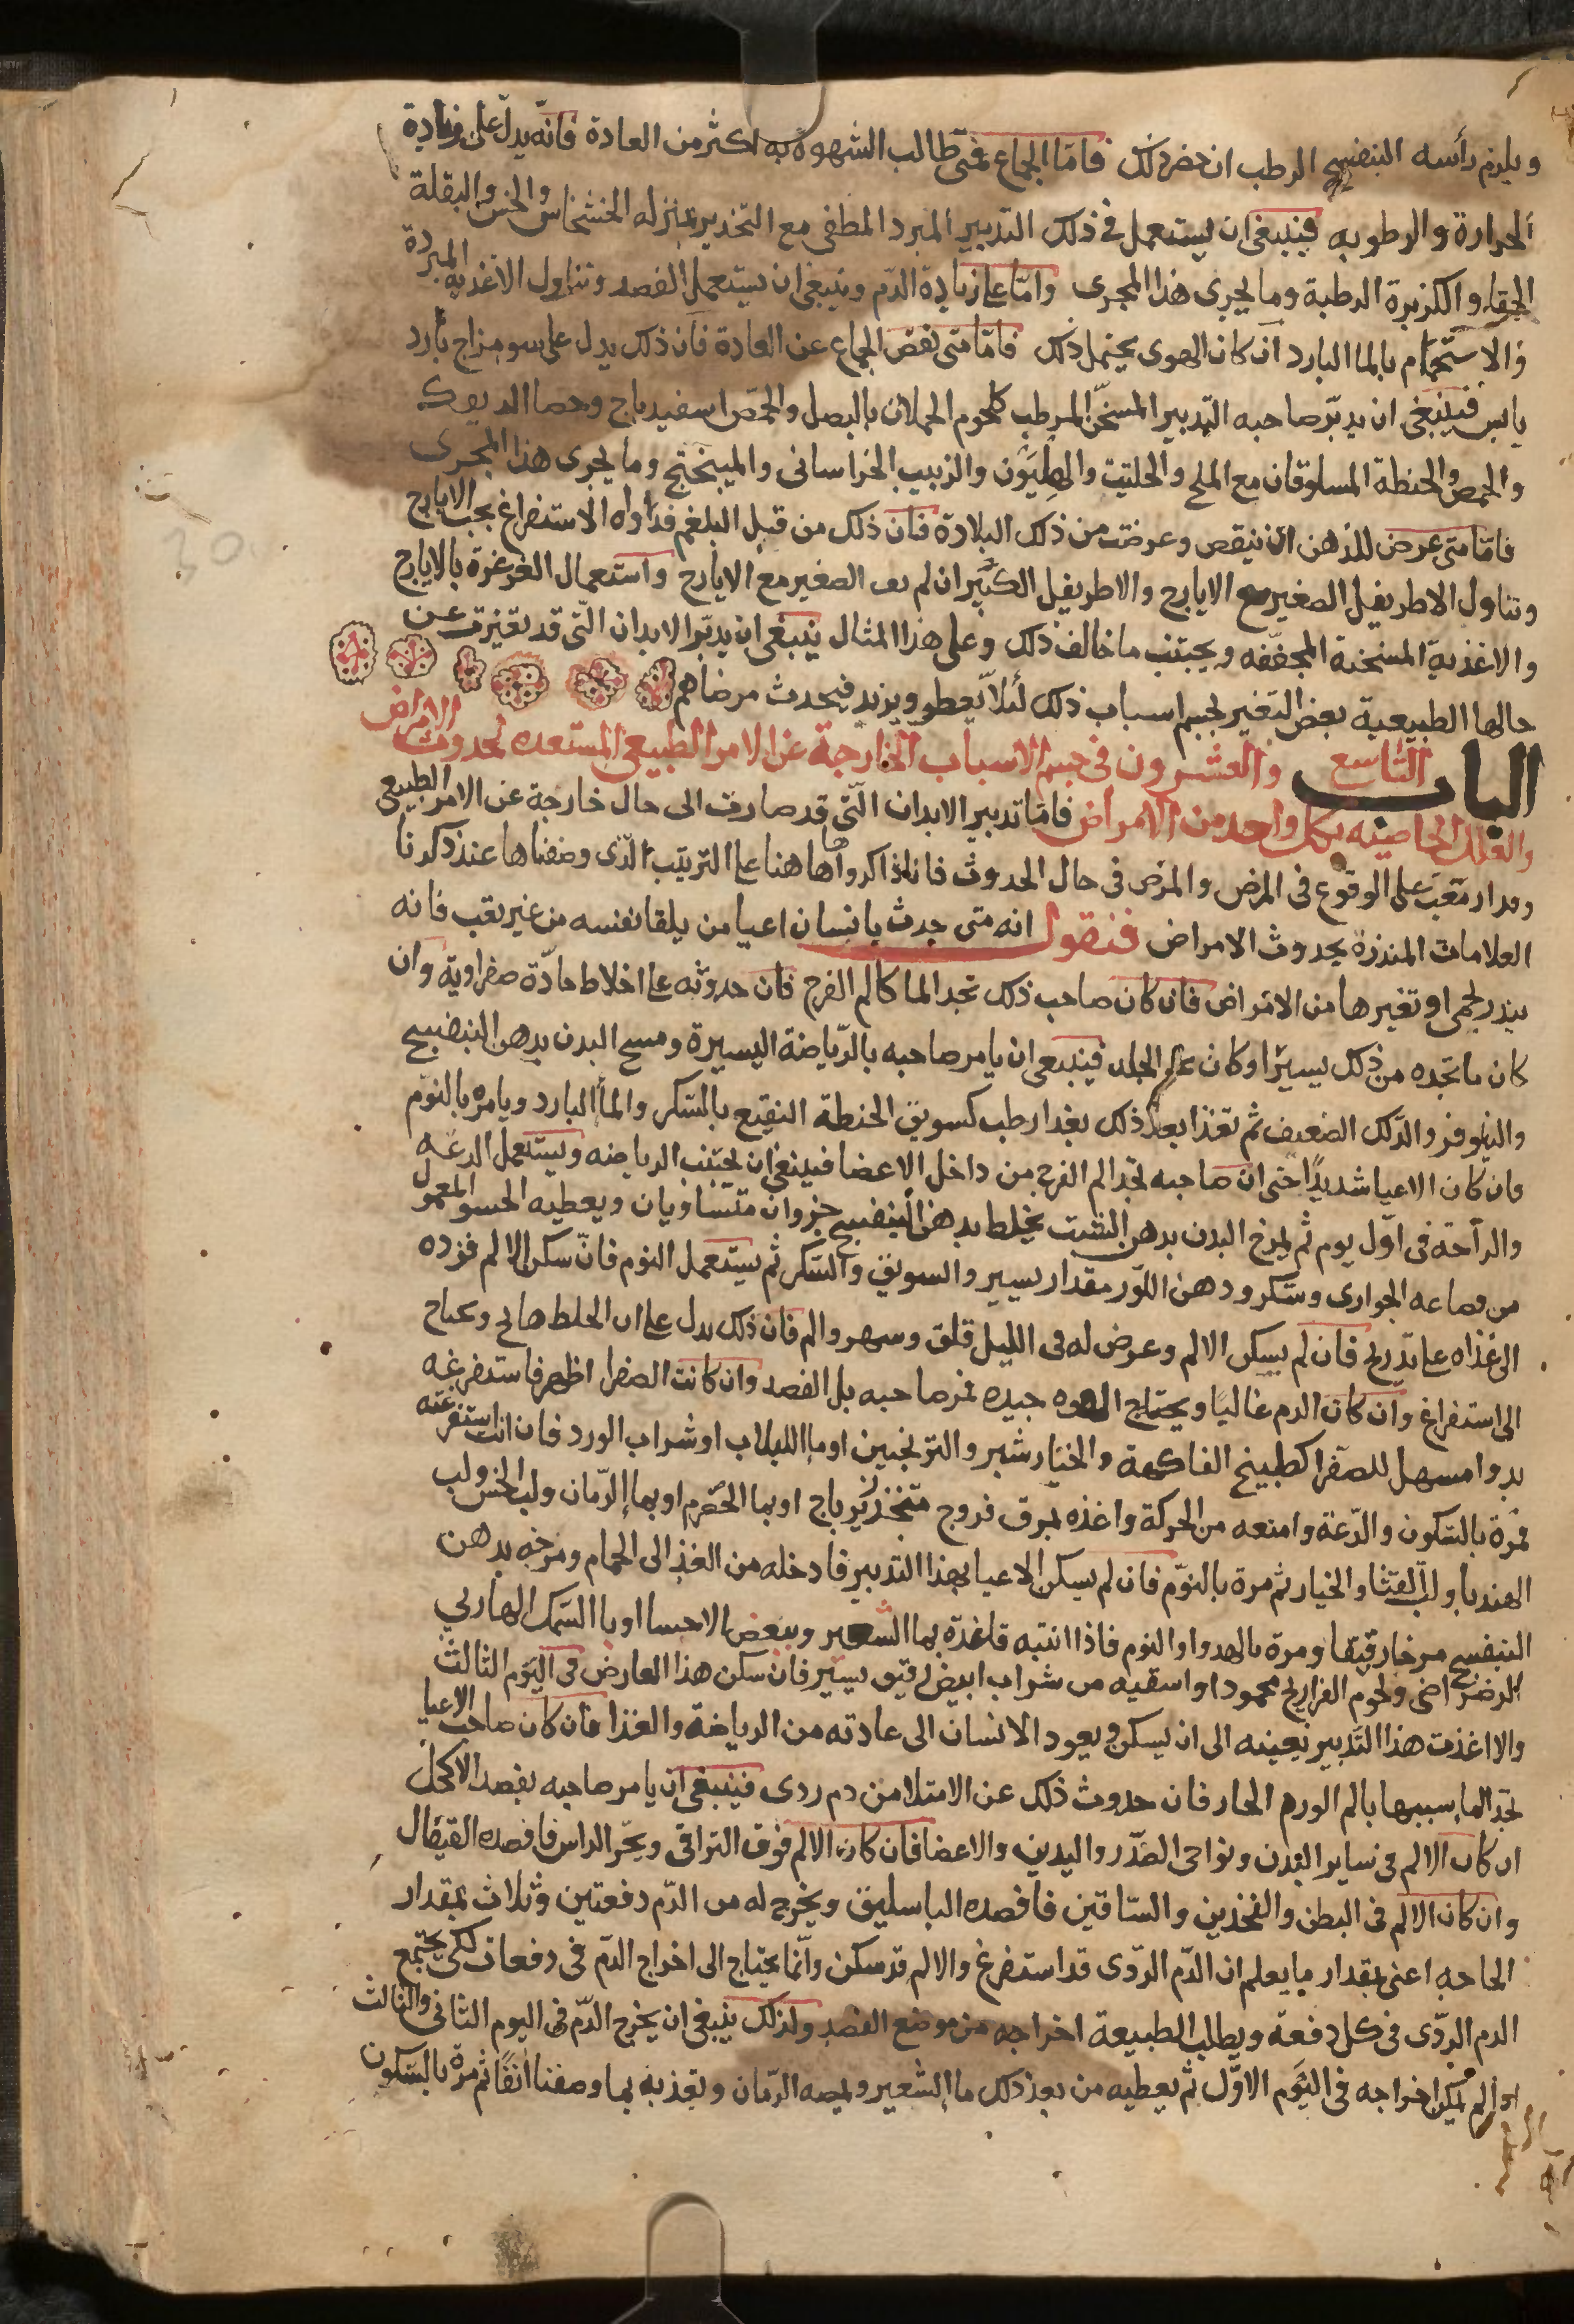 ويلزم رأسه البنفسج الرطب ان حضر ذلك فامّا الجماع فمتى طالب الشهوة به اكثر من العادة فانّه يدلّ على زيادة
الحرارة والرطوبه فينبغى ان يستعمل فى ذلك التدبير المبرد المطفى مع التخدير بمنزله الخشخاش والخس والبقلة
الحمقاء والكزبرة الرطبة وما يجرى هذا المجرى وامّا على زيادة الدّم وينبغى ان يستعمل الفصد وتناول الاغذيه المبردة
والاستحمام بالما البارد ان كان الهوى يحتمل ذلك فامّا متى نقص الجماع عن العادة فان ذلك يدل على سو مزاج بارد
يابس فينبغى ان يدبّر صاحبه التدبير المسخّن المرطب كلحوم الحملان بالبصل والحمّص اسفيدباج وخصا الديوك
والحمص والحنطة المسلوقان مع الملح والحلتيت والهليون والزبيب الخراسانى والميبختج وما يجرى هذا المجرى
فامّا متى عرض للذهن ان ينقص وعرضت من ذلك البلادة فان ذلك من قبل البلغم فداواه الاستفراغ بحب الايارج
وتناول الاطريفل الصغير مع الايارج والاطريفل الكبير ان لم الصغير مع الايارج واستعمال الغرغرة بالايارج
والاغذية المسخنة المجفّفه ويجتنب ما خالف ذلك وعلى هذا المثال ينبغى ان يدبّر الابدان الّتى قد تغيرت عن
حالها الطبيعية بعض التغير لجسم اسباب ذلك لئلاّ يعطو ويزيد فيحدث مرضا هم
الباب التّاسع والعشرون فى جسم الاسباب الخارجة عن الامر الطبيعى المستعده لحدوث الامراض
والعلل الخاصيه بكل واحد من الامراض فامّا تدبير الابدان الّتى قد صارت الى حال خارجة عن الامر الطبيعى
على الوقوع فى المرض والمرض فى حال الحدوث فانا ذاكروها هاهنا على الترتيب الّذى وصفناها عند ذكرنا
العلامات المنذرة بحدوث الامراض فنقول انه متى حدث بانسان اعيا من يلقا نفسه من غير تعب فانه
ينذر بحمى او تغيرها من الامراض فان كان صاحب ذلك تجد الما كالم القرح فان حدوثه على اخلاط حادّة صفراوية وان
كان ما تجده من ذلك يسيرًا وكان على الجلد فينبغى ان يامر صاحبه بالرّياضة اليسيرة ومسح البدن بدهن البنفسج
والنيلوفر والدّلك الضعيف ثم تغذا بعد ذلك بغدا رطب كسويق الحنطة النقيع بالسّكر والمأ البارد ويامره بالنوم
وان كان الاعيا شديدًا حتى ان صاحبه تجد الم القرح من داخل الاعضا فينبغى ان يجتنب الرياضه ويستعمل الدعه
والراحة فى اوّل يوم ثم يمرخ البدن بدهن الشبت يخلط بدهن البنفسج جزوان متساويان ويعطيه الحسو المعمول
من الحوارى وسّكر ودهن اللّوز مقدار يسير والسويق والسّكر ثم يستعمل النوم فان سكن الالم فزده
الى غذاه على تدريج فان لم يسكن الالم وعرض له فى الليل قلق وسهر والم فان ذلك يدل على ان الخلط هايج ويحتاج
الى استفراغ وان كان الدم غالبًا ويحتاج القوه جيده فمر صاحبه بل الفصد وان كانت الصفرا اظهر فاستفرغه
بدوا مسهل للصفرا كطبيخ الفاكهة والخيارشنبر والترنجبين او ما اللبلاب او شراب الورد فان انت استفرغته
فمرة بالسّكون والدّعة وامنعه من الحركة واغذه بمرق فروج متخذ زيرباج او بما الحصرم او بما الرّمان ولب الخس ولب
الهندبا ولب القثا والخيار ثم مرة بالنوّم فان لم يسكن الاعيا بهذا التدبير فادخله من الغذ الى الحمام ومرخه بدهن
البنفسج مرخا رقيقا ومرة بالهدوا والنوم فاذا انتبه فاغذّه بما الشعير وببعض الاحسا او با السّمك الهاربى
الرضراضى ولحوم الفراريج محمودا واسقيه من شراب ابيض رقيق يسير فان سكن هذا العارض فى اليوم الثالث
والا اغذت هذا التدبير بعينه الى ان يسكن ويعود الانسان الى عادته من الرياضة والغذا فان كان صاحب الاعيا
تجد الما سببها بالم الورم الحار فان حدوث ذلك عن الامتلا من دم ردى فينبغى ان يامر صاحبه بفصد الاكحل
ان كان الالم فى ساير البدن ونواحى الصّدر واليدين والاعضا فان كان الالم فوق التراقى ويجر الراس فافصده القيفال
وان كان الالم فى البطن والفخذين والسّاقين فافصده الباسليق ويخرج له من الدّم دفعتين وثلاث بمقدار
الحاجه اعنى بمقدار ما يعلم ان الدّم الردّى قد استفرغ والالم قد سكن وانّما يحتاج الى اخراج الدّم فى دفعات لكى يجتمع
الدم الردّى فى كل دفعة ويطلب الطبيعة اخراجه من موضع الفصد ولذلك ينبغى ان يخرج الدّم فى اليوم الثانى والثالث
اذا لم يمكن اخراجه فى اليوم الاوّل ثم يعطيه من بعد ذلك ما الشعير ويمصه الرّمان وتغذيه بما وصفنا انفًا ثم مرة بالسّكون